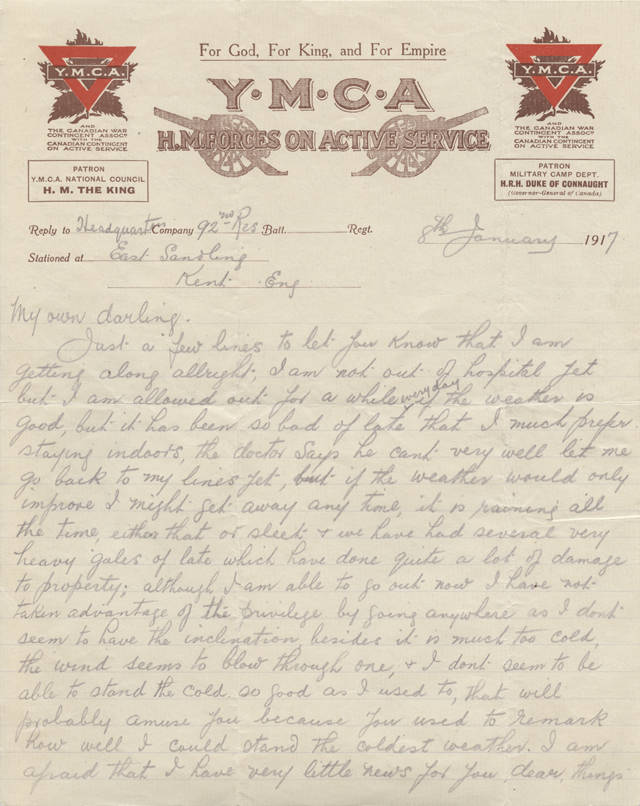 For God, For King, and For Empire
Y.M.C.A.
AND
THE CANADIAN WAR
CONTINGENT ASSOCN
WITH THE
CANADIAN CONTINGENT
ON ACTIVE SERVICE
Y·M·C·A
H.M. FORCES ON ACTIVE SERVICE
Y.M.C.A.
AND
THE CANADIAN WAR
CONTINGENT ASSOCN
WITH THE
CANADIAN CONTINGENT
ON ACTIVE SERVICE
PATRON
Y.M.C.A. NATIONAL COUNCIL
H. M. THE KING
PATRON
MILITARY CAMP DEPT.
H.R.H. DUKE OF CONNAUGHT
(Governor-General of Canada)
Reply to Headquarter Company 92nd Res Batt. Regt. 8th January 1917
Stationed at East Sandling
Kent Eng
My own darling.
Just a few lines to let you know that I am
getting along allright, I am not out of hospital yet
but I am allowed out for a while every day if the weather is
good, but it has been so bad of late that I much prefer
staying indoors, the doctor says he cant very well let me
go back to my lines yet, but if the weather would only
improve I might get away any time, it is raining all
the time, either that or sleet & we have had several very
heavy gales of late which have done quite a lot of damage
to property; although I am able to go out now I have not
taken advantage of the privilege by going anywhere as I dont
seem to have the inclination besides it is much too cold,
the wind seems to blow through one, & I dont seem to be
able to stand the cold so good as I used to, that will
probably amuse you because you used to remark
how well I could stand the coldest weather. I am
afraid that I have very little news for you, dear, things